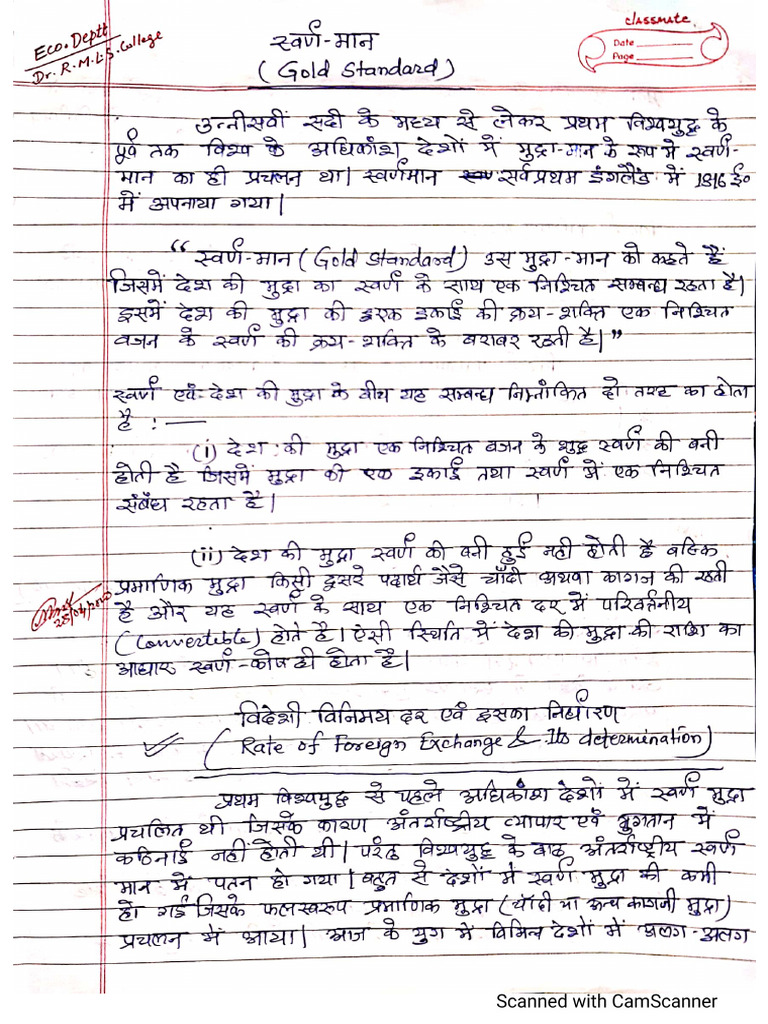 Eco. Deptt
Dr. R.M.L.S. College
classmate
Date
Page
स्वर्ण-मान
(Gold Standard)
उन्नीसवीं सदी के मध्य से लेकर प्रथम विश्वयुद्ध के
पूर्व तक विश्व के अधिकांश देशों में मुद्रा-मान के रूप मे स्वर्ण-
मान का ही प्रचलन था। स्वर्णमान सर्वप्रथम इंगलैंड में 1816 ई०
में अपनाया गया।
“स्वर्ण-मान (Gold Standard) उस मुद्रा-मान को कहते हैं
जिसमें देश की मुद्रा का स्वर्ण के साथ एक निश्चित सम्बन्ध रहता है।
इसमें देश की मुद्रा की हरएक इकाई की क्रय-शक्ति एक निश्चित
वजन के स्वर्ण की क्रय-शक्ति के बराबर रहती है।”
स्वर्ण एवं देश की मुद्रा के बीच यह सम्बन्ध निम्नांकित दो तरह का होता
है :—
(i) देश की मुद्रा एक निश्चित वजन के शुद्ध स्वर्ण की बनी
होती है जिसमें मुद्रा की एक इकाई तथा स्वर्ण में एक निश्चित
संबंध रहता है।
(ii) देश की मुद्रा स्वर्ण की बनी हुई नही होती है बल्कि
प्रमाणिक मुद्रा किसी दूसरे पदार्थ जैसे चाँदी अथवा कागज की रहती
है और यह स्वर्ण के साथ एक निश्चित दर में परिवर्तनीय
(Convertible) होते है। ऐसी स्थिति में देश की मुद्रा की राशि का
आधार स्वर्ण-कोष ही होता है।
विदेशी विनिमय दर एवं इसका निर्धारण
(Rate of Foreign Exchange & Its determination)
प्रथम विश्वयुद्ध से पहले अधिकांश देशों में स्वर्ण मुद्रा
प्रचलित थी जिसके कारण अंतर्राष्ट्रीय व्यापार एवं भुगतान में
कठिनाई नहीं होती थी। परंतु विश्वयुद्ध के बाद अंतर्राष्ट्रीय स्वर्ण
मान में पतन हो गया। बहुत से देशों में स्वर्ण मुद्रा की कमी
हो गई जिसके फलस्वरूप प्रमाणिक मुद्रा (चाँदी या अन्य कागजी मुद्रा)
प्रचलन में आया। आज के युग में विभिन्न देशों में अलग-अलग
Scanned with CamScanner